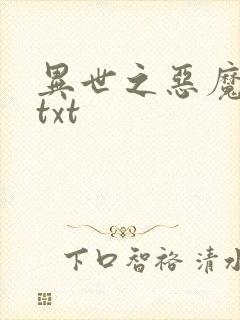 異世之惡魔
txt
下口智裕 清水